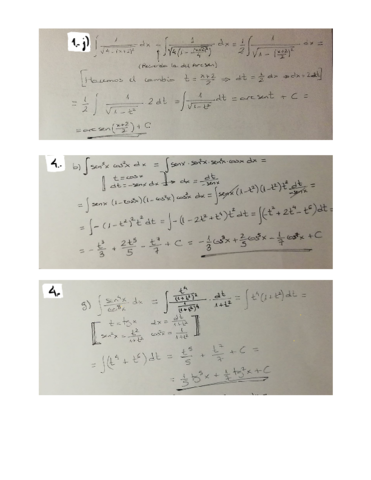 1. j) ∫ 1/√(4-(x+2)²) dx = ∫ 1/√(4(1-(x+2)²/4)) dx = 1/2 ∫ 1/√(1-(x+2/2)²) dx =
[Hacemos el cambio t = x+2/2 ⇒ dt = 1/2 dx ⇒ dx = 2dt]
= 1/2 ∫ 1/√(1-t²) 2 dt = ∫ 1/√(1-t²) dt = arc sen t + C =
= arc sen (x+2/2) + C
4. b) ∫ sen⁵x cos²x dx = ∫ senx · sen²x · sen²x · cos²x dx =
t = cosx
dt = -senx dx ⇒ dx = dt/-senx
= ∫ senx (1-cos²x) (1-cos²x) cos²x dx = ∫ senx (1-t²)(1-t²) t² dt/-senx =
= ∫ -(1-t²)² t² dt = ∫ -(1-2t²+t⁴) t² dt = ∫ (-t²+2t⁴-t⁶) dt =
= -t³/3 + 2t⁵/5 - t⁷/7 + C = -1/3 cos³x + 2/5 cos⁵x - 1/7 cos⁷x + C
4. g) ∫ sen⁴x/cos⁸x dx = ∫ t⁴/(1+t²)² / 1/(1+t²)⁴ · dt/1+t² = ∫ t⁴(1+t²) dt =
t = tgx dx = dt/1+t²
sen²x = t²/1+t² cos²x = 1/1+t²
= ∫ (t⁴+t⁶) dt = t⁵/5 + t⁷/7 + C =
= 1/5 tg⁵x + 1/7 tg⁷x + C